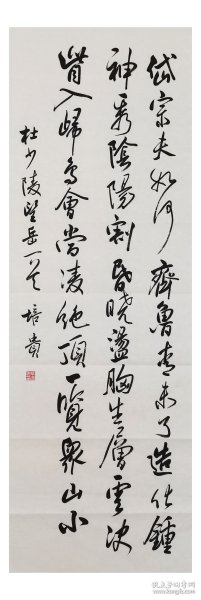 岱宗夫如何齊魯青未了造化鍾
神秀陰陽割昏曉盪胸生層雲決
眥入歸鳥會當凌絕頂一覽眾山小
杜少陵望岳一首 培貴
孔夫子旧书网